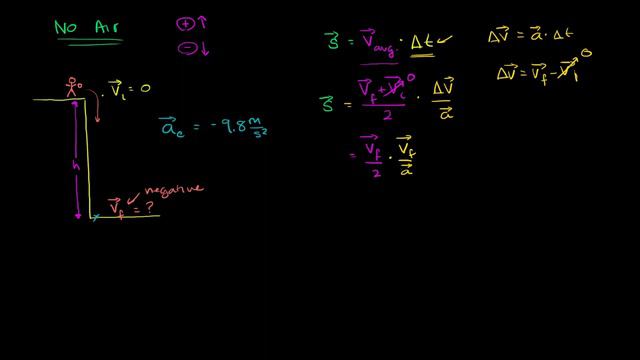 No Air
⊕↑
⊖↓
v⃗ᵢ = 0
a⃗_c = -9.8 m/s²
h
negative
v⃗_f = ?
s⃗ = v⃗_avg. · Δt ✓
s⃗ = (v⃗_f + v⃗ᵢ⁰)/2 · Δv⃗/a⃗
= v⃗_f/2 · v⃗_f/a⃗
Δv⃗ = a⃗ · Δt
Δv⃗ = v⃗_f - v⃗ᵢ⁰